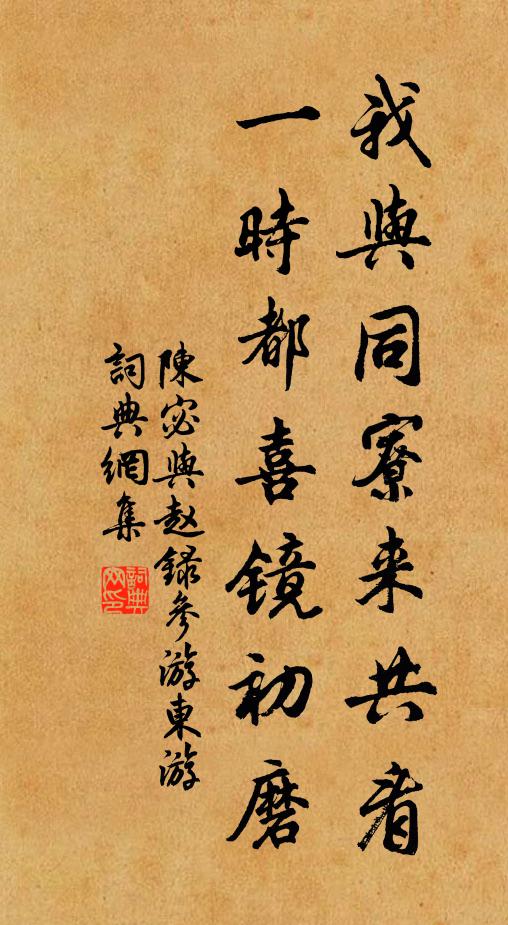 我與同寮来共看
一時都喜镜初磨
陳宓與赵録參游東游
詞典網集
詞典
网印